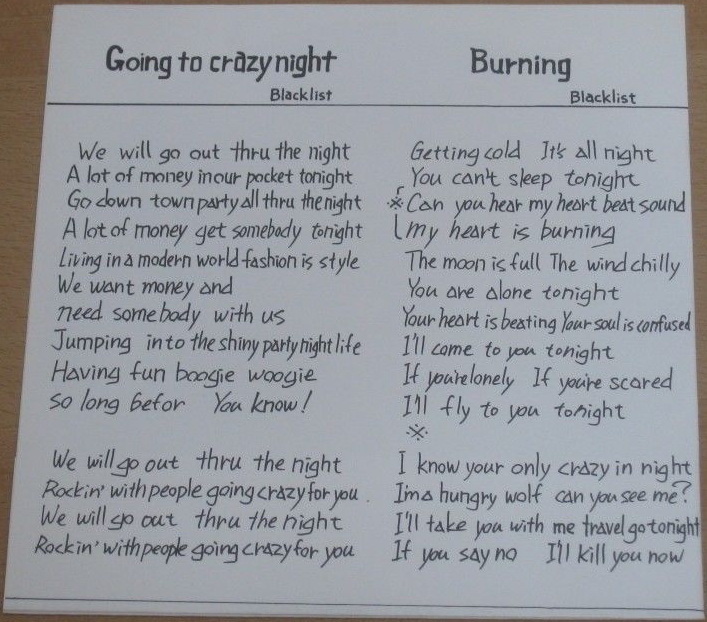 Going to crazy night
Blacklist
We will go out thru the night
A lot of money in our pocket tonight
Go down town party all thru the night
A lot of money get somebody tonight
Living in a modern world fashion is style
We want money and
need somebody with us
Jumping into the shiny party night life
Having fun boogie woogie
so long befor You know!
We will go out thru the night
Rockin' with people going crazy for you.
We will go out thru the night
Rockin' with people going crazy for you
Burning
Blacklist
Getting cold It's all night
You can't sleep tonight
※Can you hear my heart beat sound
my heart is burning
The moon is full The wind chilly
You are alone tonight
Your heart is beating Your soul is confused
I'll come to you tonight
If you're lonely If you're scared
I'll fly to you tonight
※
I know your only crazy in night
I'm a hungry wolf can you see me?
I'll take you with me travel go tonight
If you say no I'll kill you now